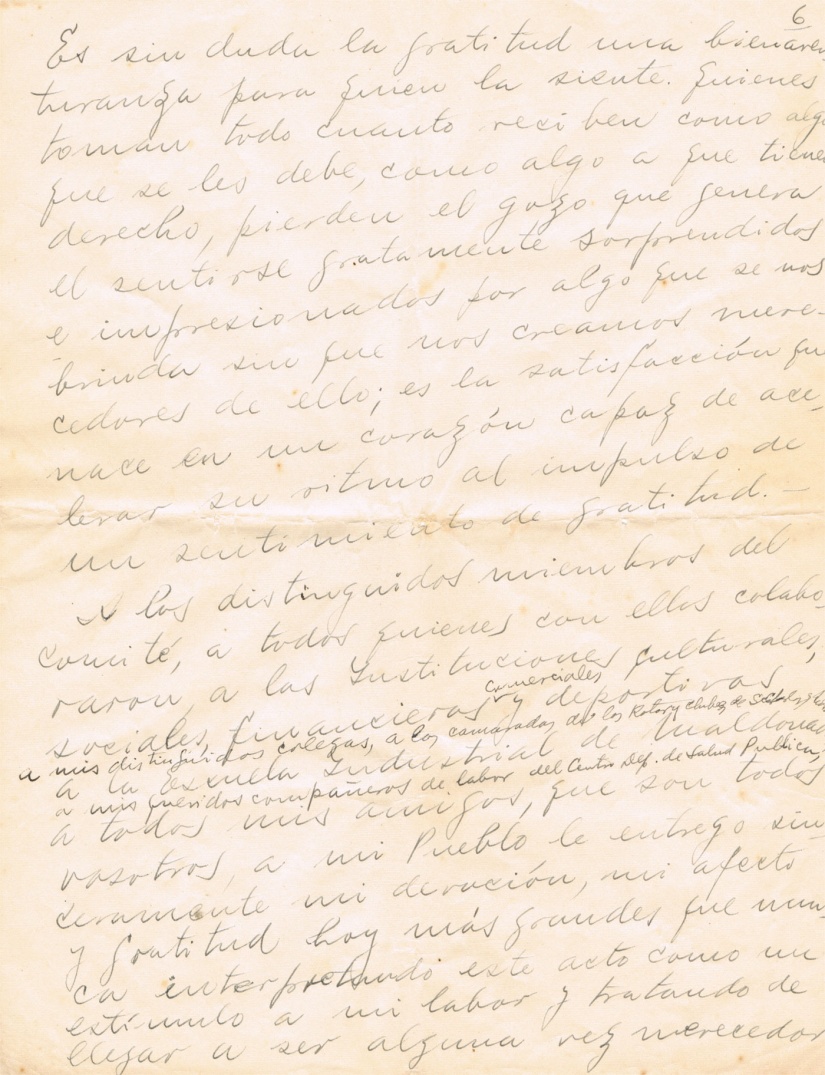 6
Es sin duda la gratitud una bienaven
turanza para quien la siente. Quienes
toman todo cuanto reciben como algo
que se les debe, como algo a que tienen
derecho, pierden el gozo que genera
el sentirse gratamente sorprendidos
e impresionados por algo que se nos
brinda sin que nos creamos mere-
cedores de ello; es la satisfacción qu
nace en un corazón capaz de ace-
lerar su ritmo al impulso de
un sentimiento de gratitud. —
A los distinguidos miembros del
comité, a todos quienes con ellos colabo-
raron, a las Instituciones culturales,
comerciales
sociales, financieras y deportivas
a mis distinguidos colegas, a los camaradas de los Rotary Clubes de
a la Escuela Industrial de Maldonado
a mis queridos compañeros de labor del Centro Dep. de Salud Publica,
a todos mis amigos, que son todos
vosotros, a mi Pueblo le entrego sin-
ceramente mi devoción, mi afecto
y gratitud hoy más grandes que nun-
ca interpretando este acto como un
estímulo a mi labor y tratando de
llegar a ser alguna vez merecedor